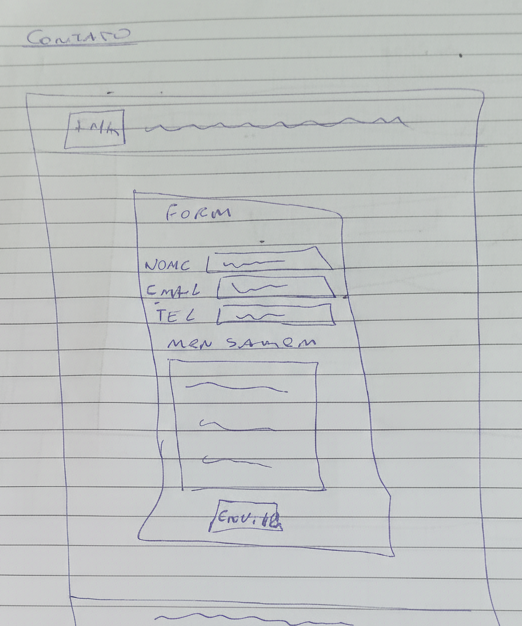 CONTATO
FORM
NOME
EMAIL
TEL
MENSAGEM
ENVIAR